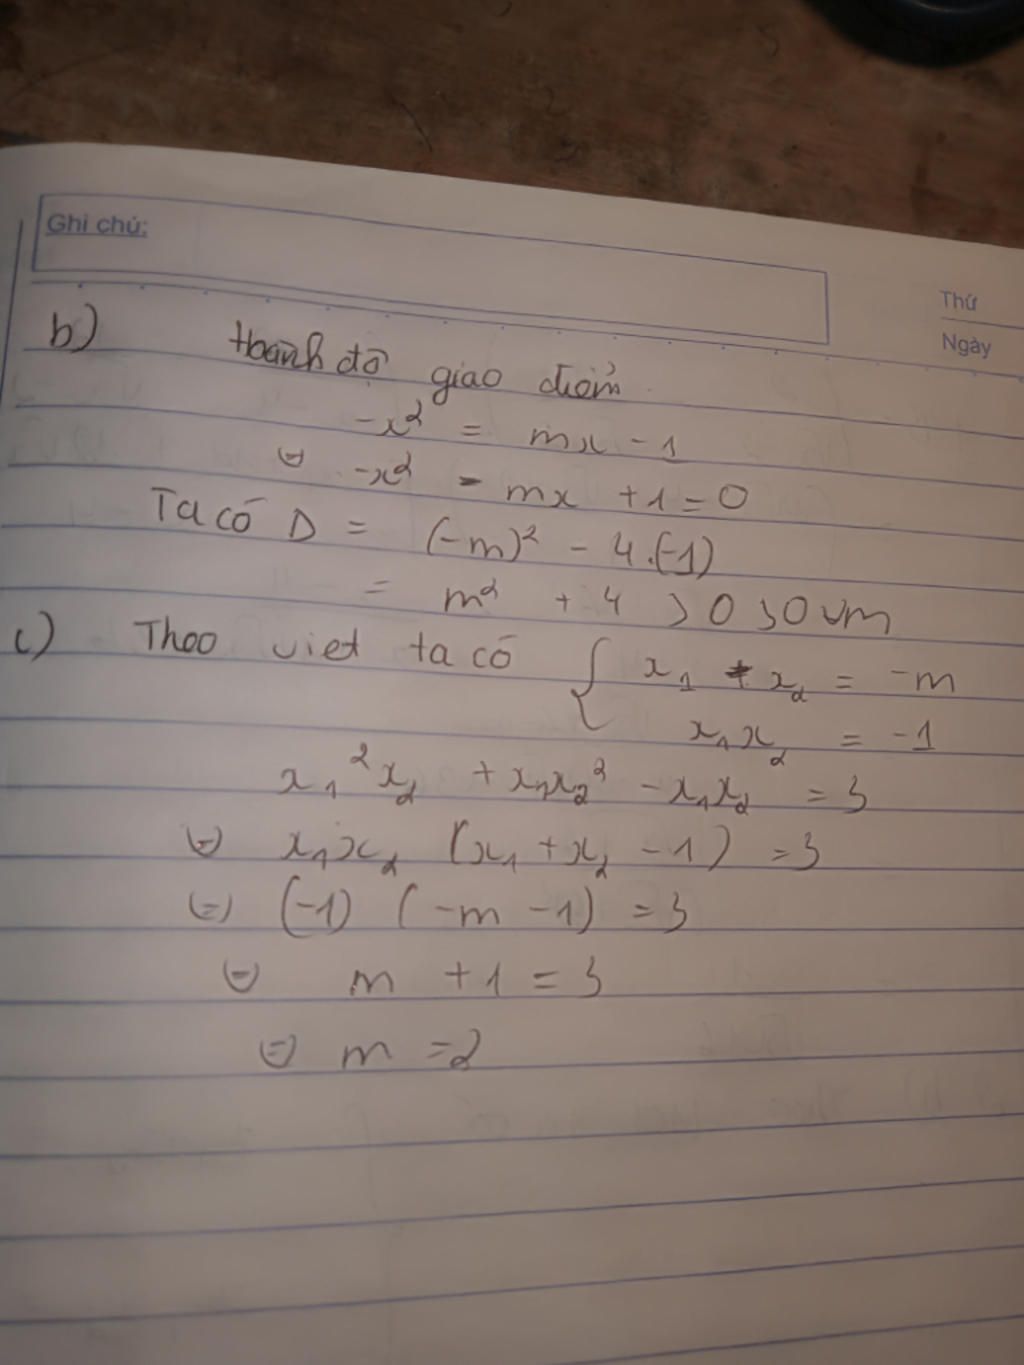 Ghi chú:
Thứ
Ngày
b) Hoành độ giao điểm
-x² = mx - 1
⇔ -x² - mx + 1 = 0
Ta có Δ = (-m)² - 4.(-1)
= m² + 4 > 0 > 0 ∀m
c) Theo viet ta có { x₁ + x₂ = -m
x₁x₂ = -1
x₁²x₂ + x₁x₂² - x₁x₂ = 3
⇔ x₁x₂ (x₁ + x₂ - 1) = 3
⇔ (-1) (-m - 1) = 3
⇔ m + 1 = 3
⇔ m = 2